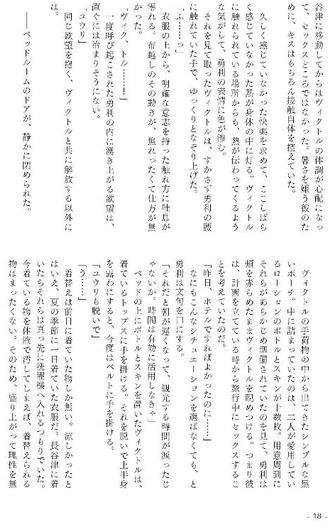 谷津に移動してからはヴィクトルの体調が心配になって、セックスどころではなかった。暑さを嫌う彼のために、キスはもちろん接触自体を控えていた。
久しく感じていなかった快楽を求めて、ここしばらく感じていなかった熱が身体の中に灯る。ヴィクトルに触れられている場所からも、熱が伝わってくるような気がして、勇利の表情に色が滲む。
それを見て取ったヴィクトルは、すかさず勇利の腰に触れていた手で、ゆっくりとなぞり上げた。
「ふ……っ」
衣服の上から、明確な意志を持った触れ方に吐息が零れる。布越しのその動きが、焦れったくて仕方が無かった。
「ヴィク、トル……！」
一度呼び起こされた勇利の内に湧き上がる欲望は、直ぐには治まりそうにない。
「ユウリ」
同じ欲望を抱く、ヴィクトルと共に解放する以外には。
――ベッドルームのドアが、静かに閉められた。
ヴィクトルの手荷物の中から出てきたシンプルな黒いポーチ。中に詰まっていたのは、二人が愛用しているローションのボトルとスキンが十数枚。用意周到にそれらがあらかじめ準備されていたのを見て、勇利は頬を赤らめたままヴィクトルを睨めつける。つまり彼は、計画を立てている時から旅行中にセックスすることを考えていたのだ。
「昨日、ホテルですればよかったのに……」
なにもこんなシチュエーションを選ばなくても、と勇利は文句を口にする。
「それだと朝が遅くなって、観光する時間が減っちゃうじゃないか。時間は有効に活用しなきゃ」
ベッドの上にボトルとスキンを置いたヴィクトルは、着ているトップスに手を掛ける。それを脱いで上半身を露わにすると、今度はベルトに手を掛ける。
「ユウリも脱いで」
「う……」
着替えは前日に着ていた物しか無い。涼しかったとはいえ、夏の季節に一日着ていた衣服だ。長谷津に着いたらそれらは真っ先に洗濯機へ入れるつもりでいた。今着ている物を体液で汚してしまえば、着替えられる物はまったくない。そのため、盛り上がって理性を無
- 18 -